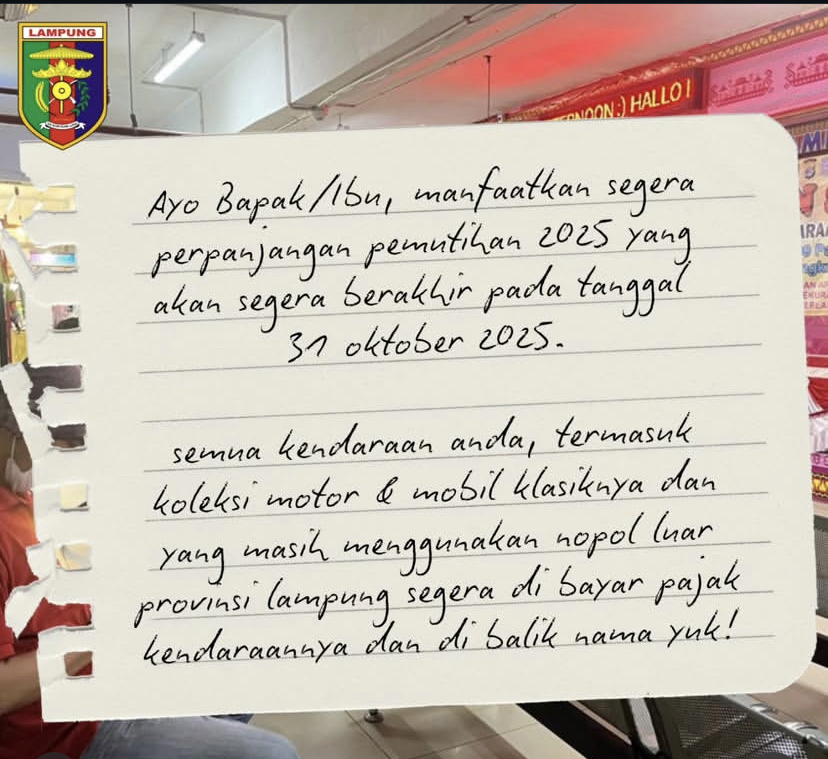 LAMPUNG
RNOON :) HALLO !
Ayo Bapak/Ibu, manfaatkan segera
perpanjangan pemutihan 2025 yang
akan segera berakhir pada tanggal
31 oktober 2025.
semua kendaraan anda, termasuk
koleksi motor & mobil klasiknya dan
yang masih menggunakan nopol luar
provinsi lampung segera di bayar pajak
kendaraannya dan di balik nama yuk!